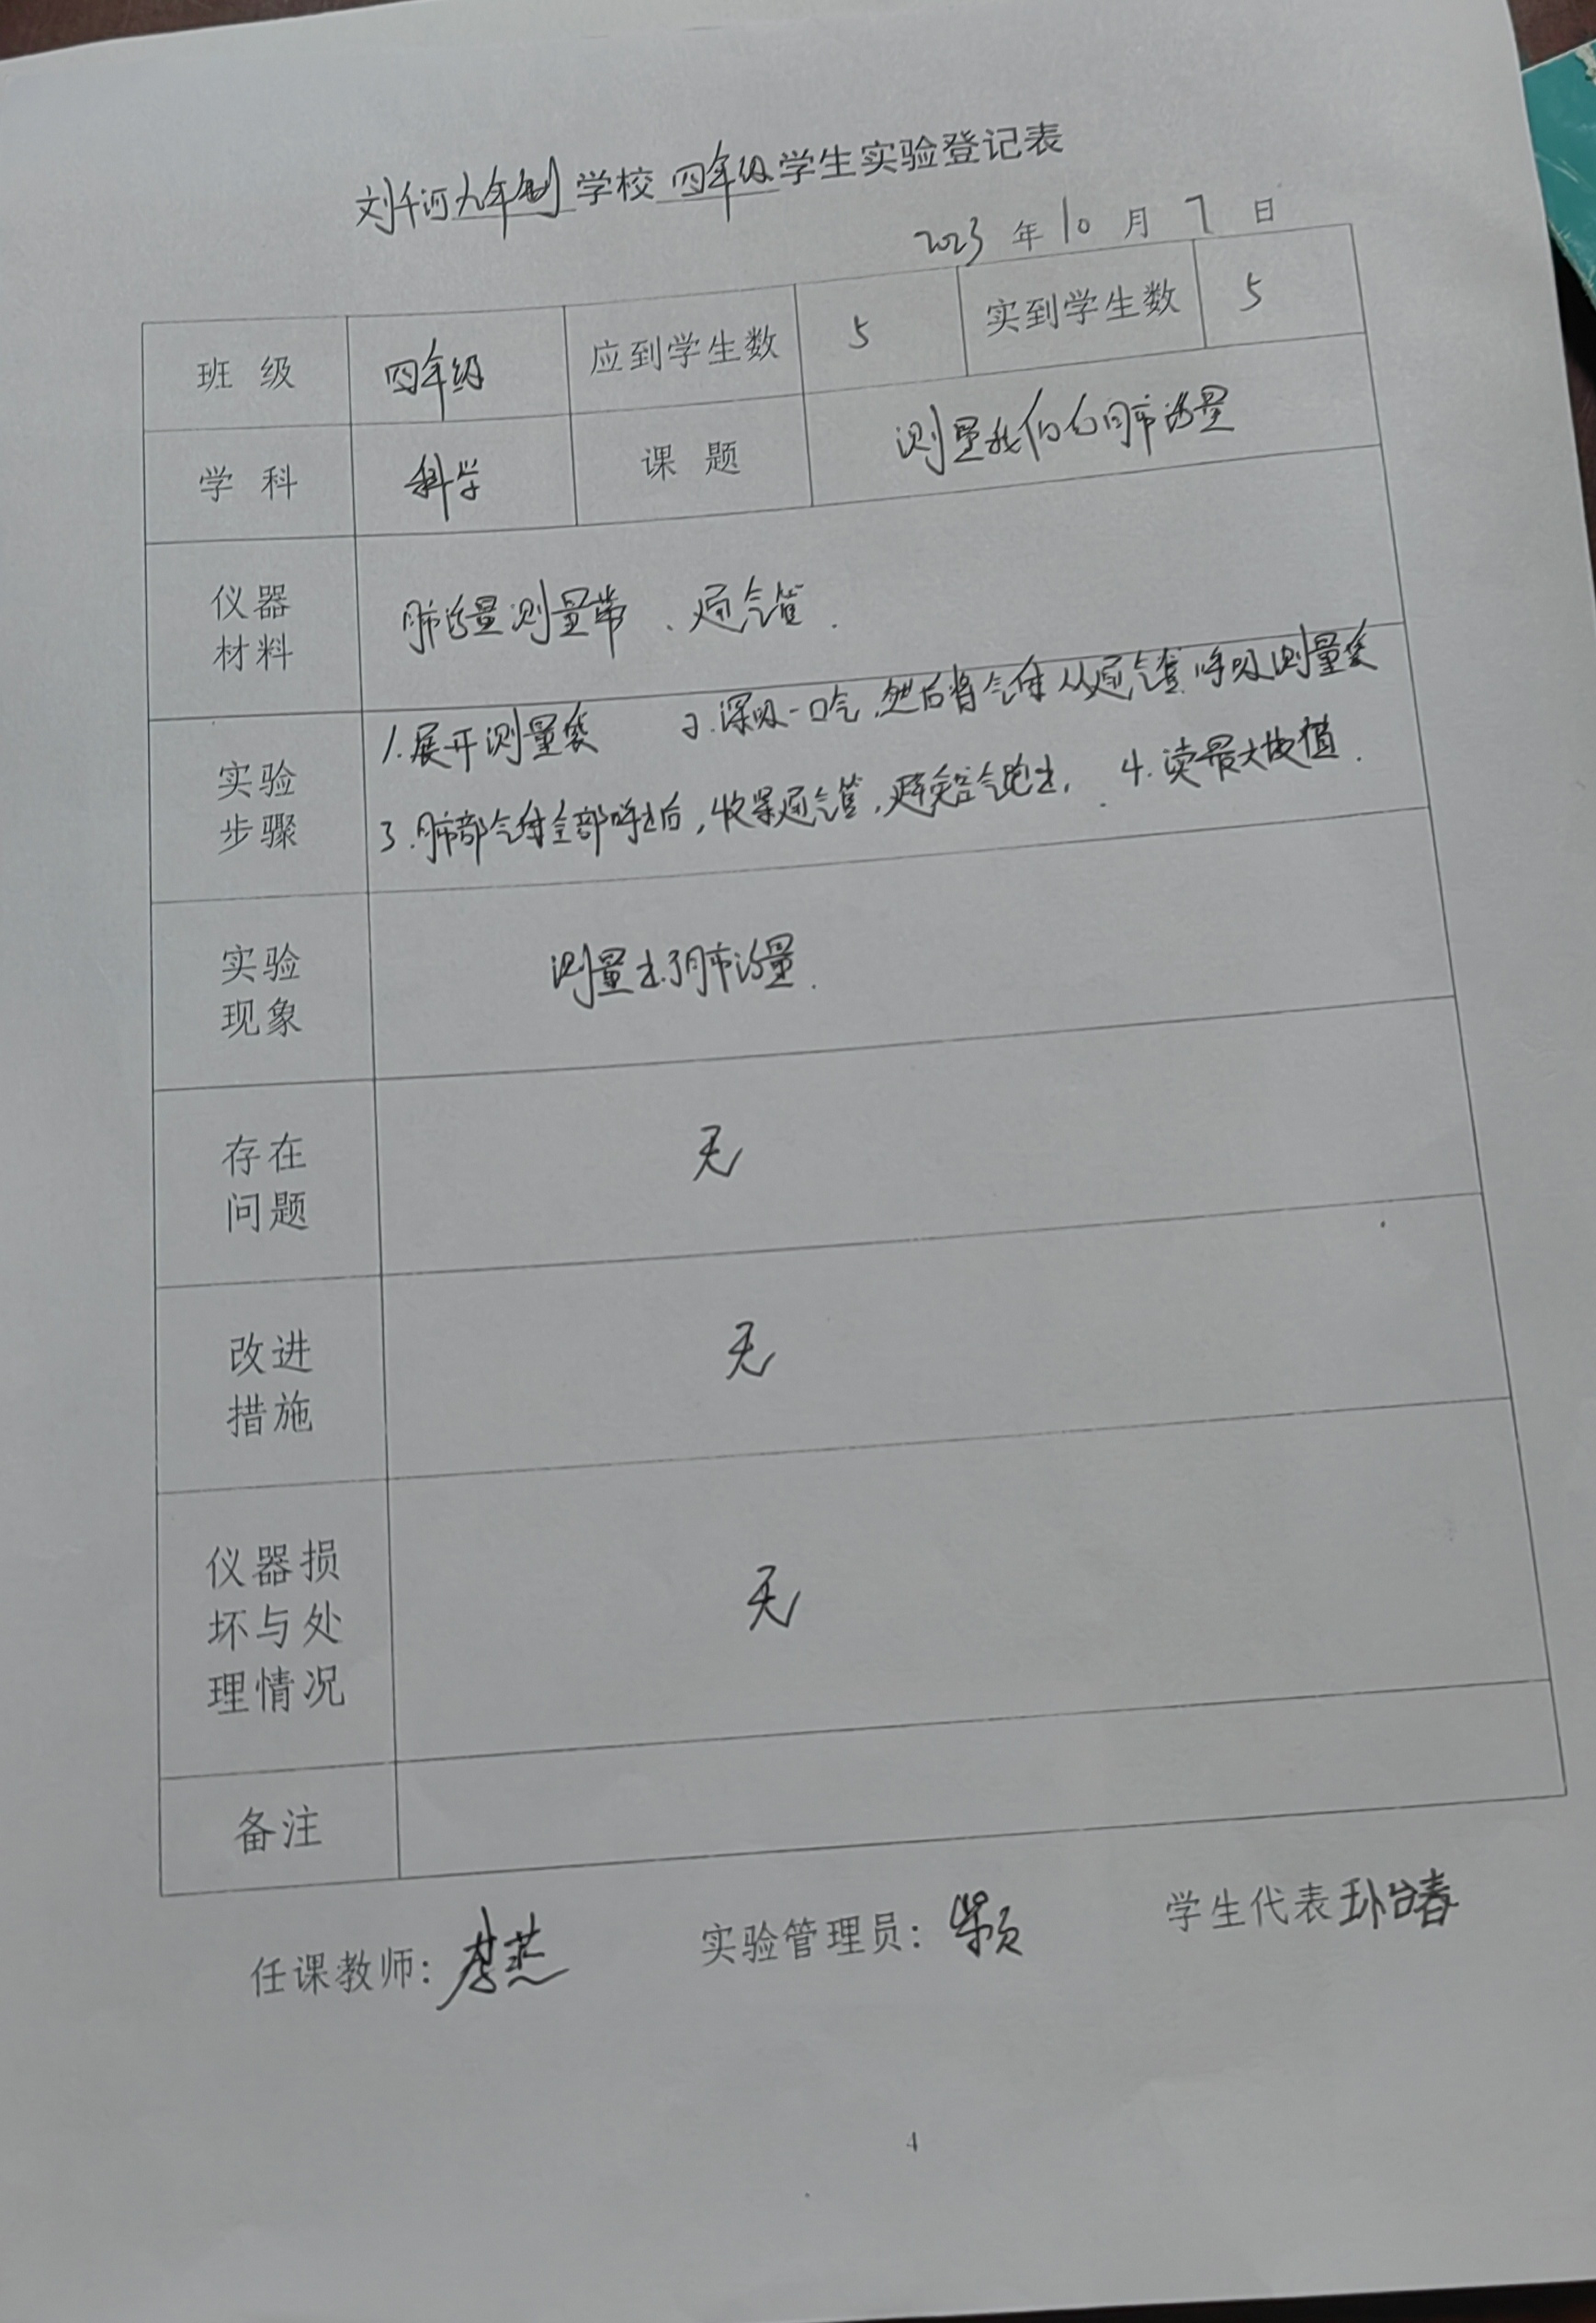 刘千河九年制学校四年级学生实验登记表
2023年10月7日
班级 四年级 应到学生数 5 实到学生数 5
学科 科学 课题 测量我们的肺活量
仪器材料 肺活量测量带、通气管.
实验步骤 1.展开测量袋 2.深吸一口气,然后将气体从通气管呼吸测量袋
3.肺部气体全部呼出后,收紧通气管,避免空气跑出. 4.读最大数值.
实验现象 测量出了肺活量.
存在问题 无
改进措施 无
仪器损坏与处理情况 无
备注
任课教师:李燕 实验管理员: 学生代表
4